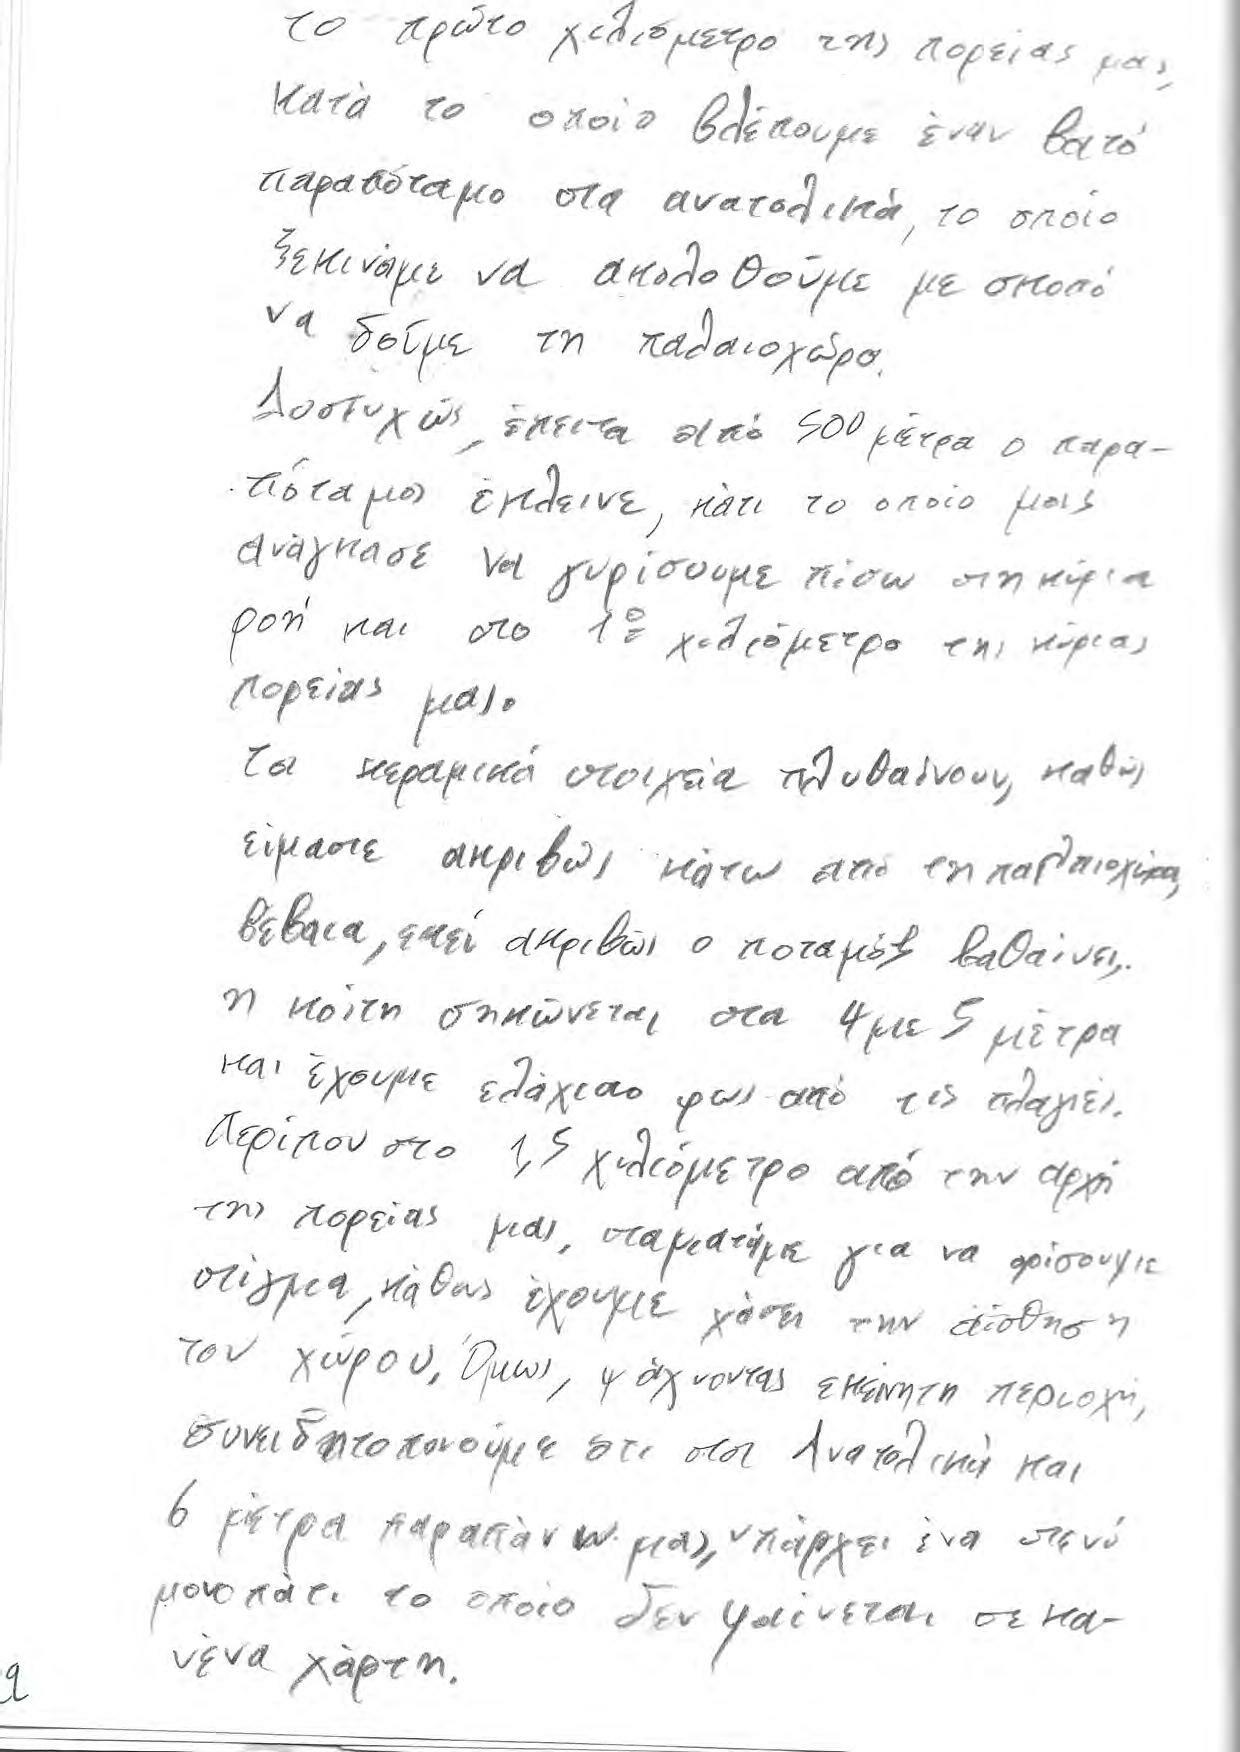 το πρώτο χιλιόμετρο της πορείας μας,
κατά το οποίο βλέπουμε έναν βατό
παραπόταμο στα ανατολικά, το οποίο
ξεκινάμε να ακολοθούμε με σκοπό
να δούμε τη παλαιοχώρα.
Δυστυχώς, έπειτα από 500 μέτρα ο παρα-
πόταμος έκλεινε, κάτι το οποίο μας
ανάγκασε να γυρίσουμε πίσω στη κύρια
ροή και στο 1ο χιλιόμετρο της κύριας
πορείας μας.
Τα κεραμικά στοιχεία πλυθαίνουν, καθώς
είμαστε ακριβώς κάτω από τη παλαιοχώρα,
βέβαια, εκεί ακριβώς ο ποταμός βαθαίνει,
η κοίτη σηκώνεται στα 4 με 5 μέτρα
και έχουμε ελάχιστο φως από τις πλαγιές.
Περίπου στο 1,5 χιλιόμετρο από την αρχή
της πορείας μας, σταματάμε για να ορίσουμε
στίγμα, κάθως έχουμε χάσει την αίσθηση
του χώρου. Όμως, ψάχνοντας εκείνη τη περιοχή,
συνειδητοποιούμε ότι στα Ανατολικά και
6 μέτρα παραπάνω μας, υπάρχει ένα στενό
μονοπάτι το οποίο δεν φαίνεται σε κα-
νένα χάρτη.
9